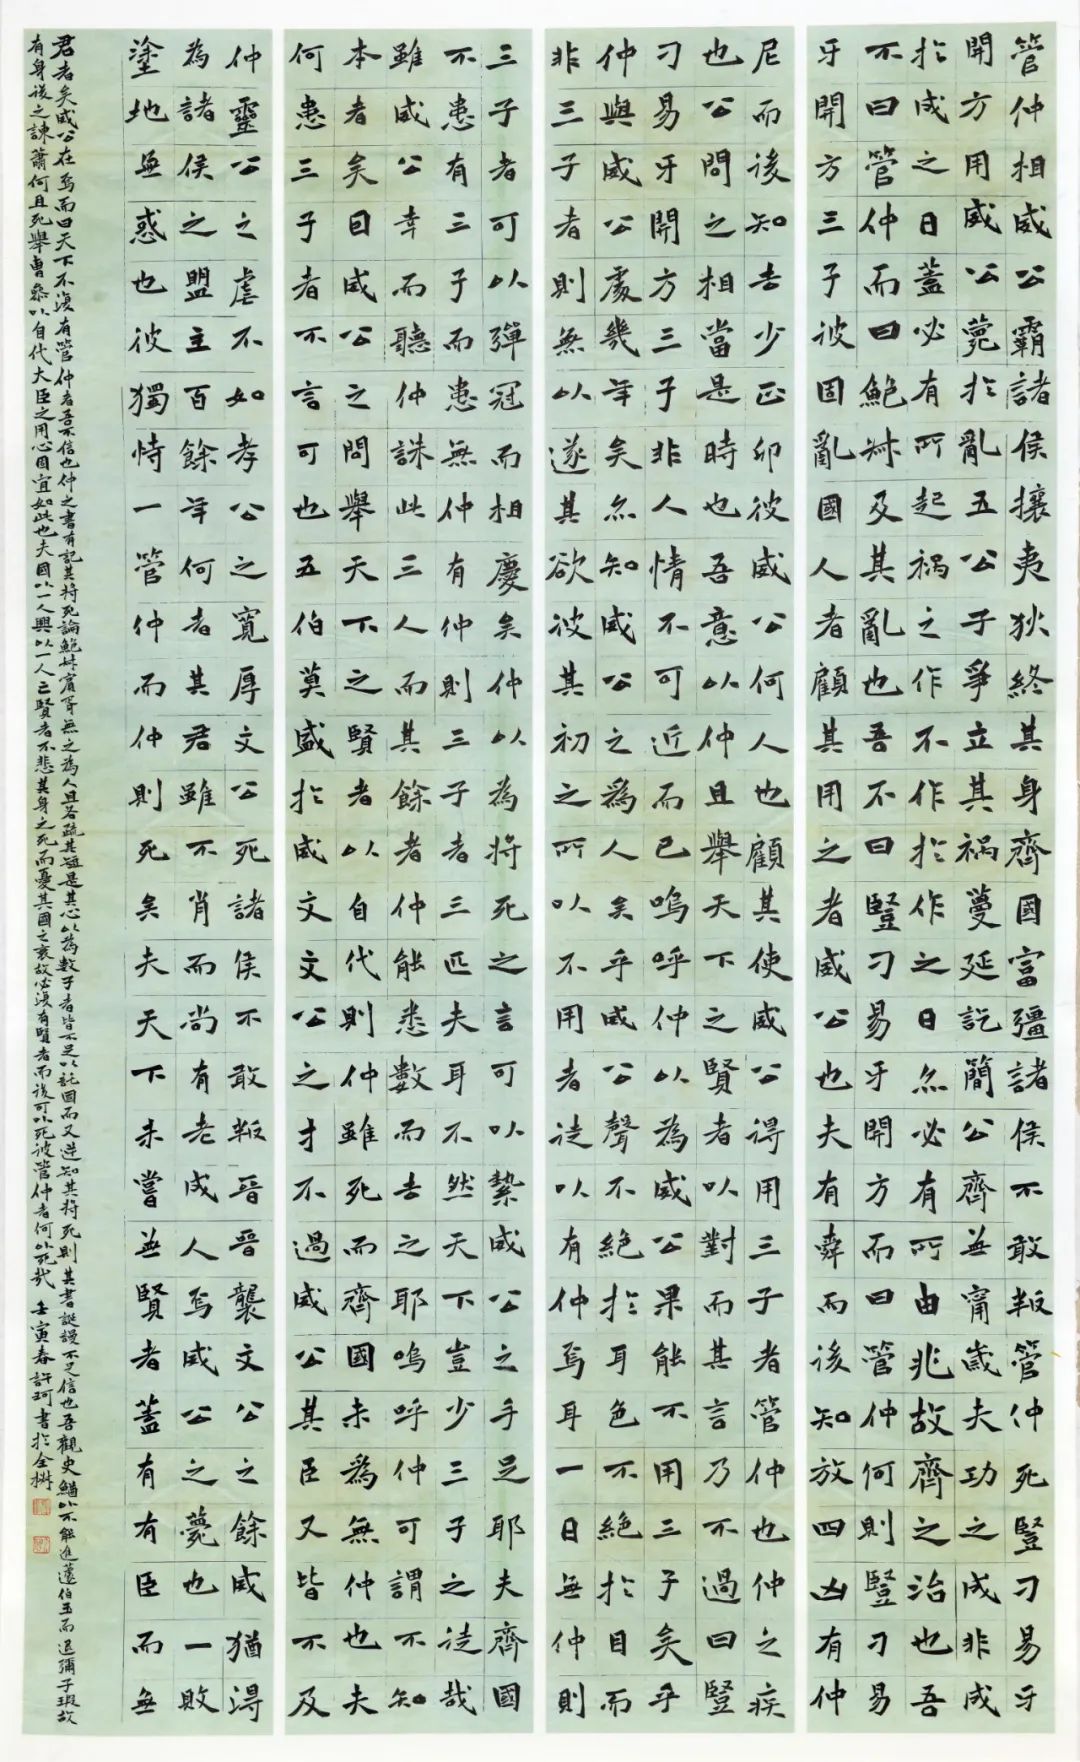 管仲相威公霸諸侯攘夷狄終其身齊國富彊諸侯不敢叛管仲死豎刁易牙
開方用威公薨於亂五公子爭立其禍蔓延訖簡公齊無甯歲夫功之成非成
於成之日蓋必有所起禍之作不作於作之日亦必有所由兆故齊之治也吾
不曰管仲而曰鮑叔及其亂也吾不曰豎刁易牙開方而曰管仲何則豎刁易
牙開方三子彼固亂國人者顧其用之者威公也夫有舜而後知放四凶有仲
尼而後知去少正卯彼威公何人也顧其使威公得用三子者管仲也仲之疾
也公問之相當是時也吾意以仲且舉天下之賢者以對而其言乃不過曰豎
刁易牙開方三子非人情不可近而已嗚呼仲以為威公果能不用三子矣乎
仲與威公處幾年矣亦知威公之爲人矣乎威公聲不絕於耳色不絕於目而
非三子者則無以遂其欲彼其初之所以不用者徒以有仲焉耳一日無仲則
三子者可以彈冠而相慶矣仲以為將死之言可以縶威公之手足耶夫齊國
不患有三子而患無仲有仲則三子者三匹夫耳不然天下豈少三子之徒哉
雖威公幸而聽仲誅此三人而其餘者仲能悉數而去之耶嗚呼仲可謂不知
本者矣因威公之問舉天下之賢者以自代則仲雖死而齊國未為無仲也夫
何患三子者不言可也五伯莫盛於威文文公之才不過威公其臣又皆不及
仲靈公之虐不如孝公之寬厚文公死諸侯不敢叛晉晉襲文公之餘威猶得
為諸侯之盟主百餘年何者其君雖不肖而尚有老成人焉威公之薨也一敗
塗地無惑也彼獨恃一管仲而仲則死矣夫天下未嘗無賢者蓋有有臣而無
君者矣威公在焉而曰天下不復有管仲者吾不信也仲之書有記其將死論鮑叔賓胥無之為人且各疏其短是其心以為數子者皆不足以託國而又逆知其將死則其書誕謾不足信也吾觀史鰌以不能進蘧伯玉而退彌子瑕故
有身後之諫蕭何且死舉曹參以自代大臣之用心固宜如此也夫國以一人興以一人亡賢者不悲其身之死而憂其國之衰故必復有賢者而後可以死彼管仲者何以死哉 壬寅春許珂書於全樹